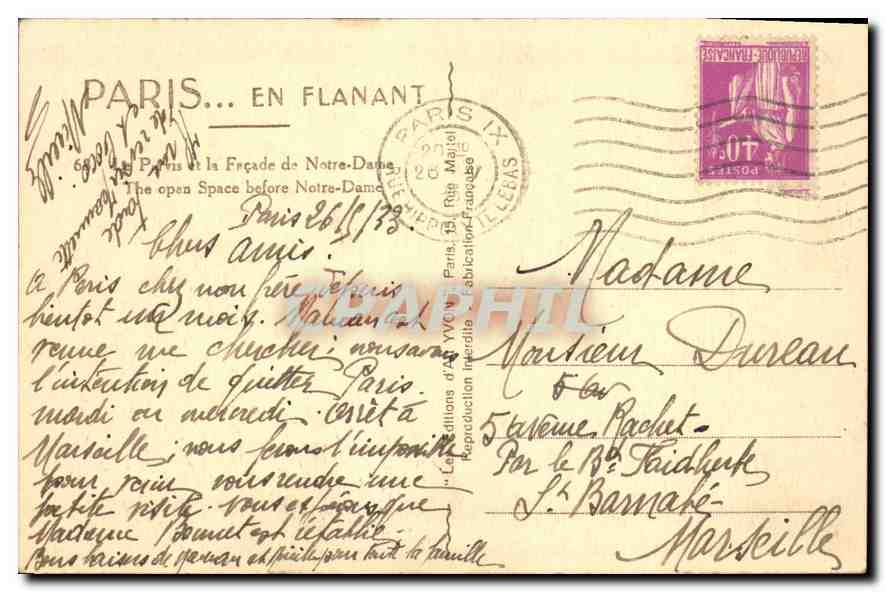 PARIS... EN FLANANT
6 Le Parvis et la Façade de Notre-Dame
The open Space before Notre-Dame
Paris 26/5/33.
Chers Amis.
A Paris chez mon frère depuis
bientot un mois. Maman est
venue me chercher; nous avons
l'intention de quitter Paris
mardi ou mercredi. Arrêt à
Marseille; nous ferons l'impossible
pour venir vous rendre une
petite visite. Nous espérons que
Madame Bonnet est rétablie.
Bons baisers de maman et pour toute la famille
Il me tarde
de revoir
et Coco.
"Les Editions d'Art YVON", Paris, 15, Rue Martel
Reproduction Interdite Fabrication Française
PARIS IX
RUE HIPPOLYTE LEBAS
REPUBLIQUE FRANÇAISE
40c
POSTES
CPAPHIL
Madame
Monsieur Dureau
5 av
5 avenue Rachet
Par le Bd Faidherbe
St Barnabé
Marseille